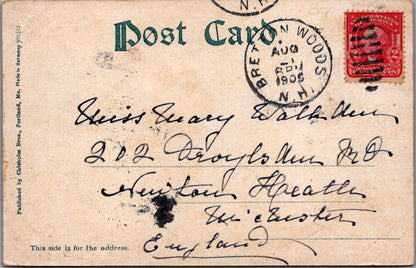 N.H.
Post Card.
BRETTON WOODS
AUG
1906
N.H.
Published by Chisholm Bros., Portland, Me. Made in Germany
Miss Mary
202 Droylsden RD
Newton Heath
England
This side is for the address.